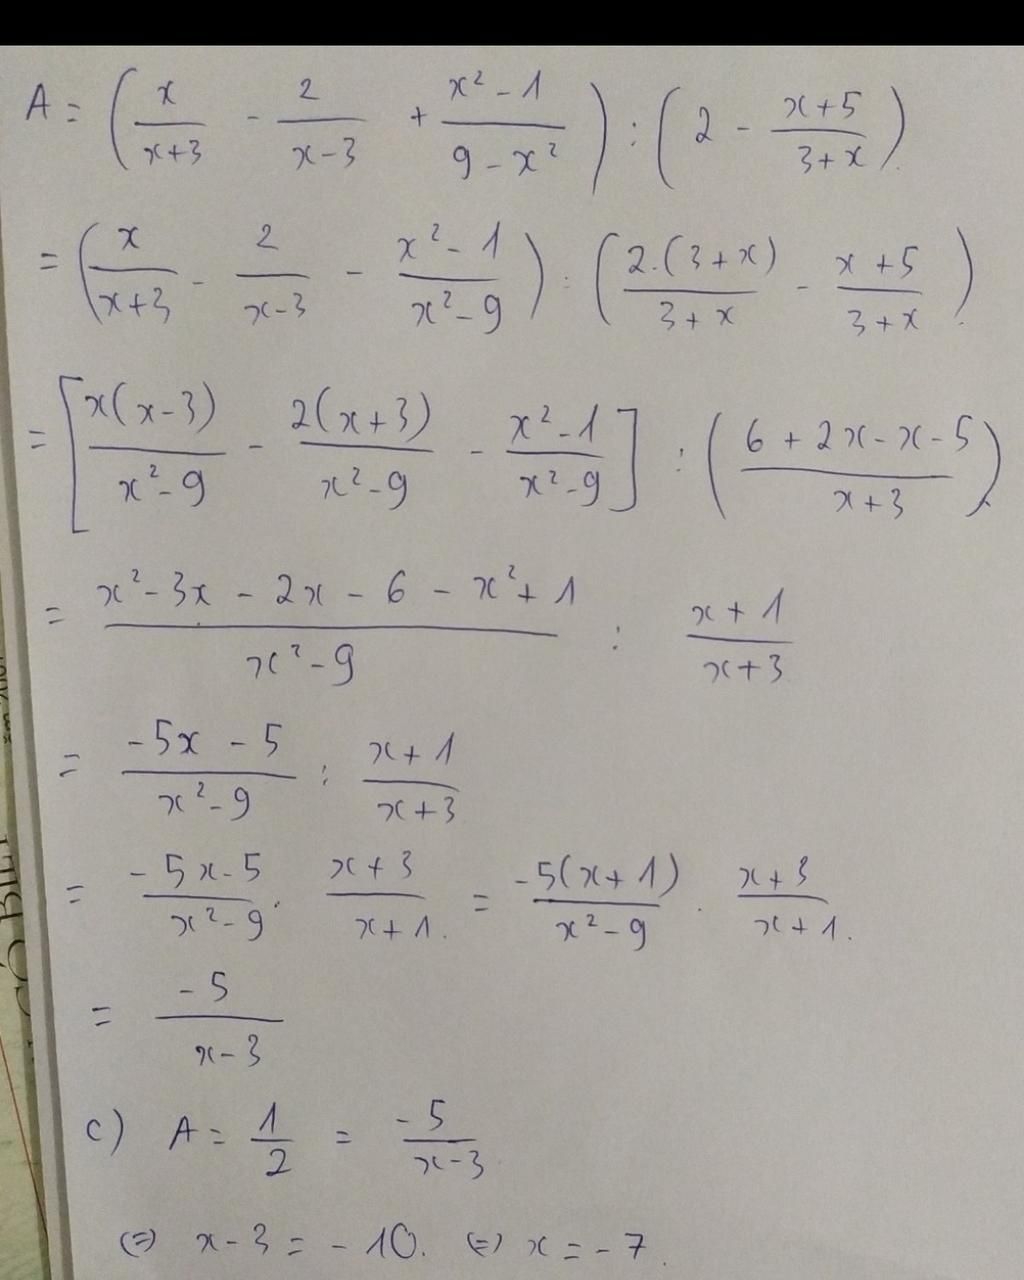 A = (x/(x+3) - 2/(x-3) + (x² - 1)/(9 - x²)) : (2 - (x+5)/(3+x))
= (x/(x+3) - 2/(x-3) - (x² - 1)/(x² - 9)) : (2.(3+x)/(3+x) - (x+5)/(3+x))
= [x(x-3)/(x² - 9) - 2(x+3)/(x² - 9) - (x² - 1)/(x² - 9)] : ((6 + 2x - x - 5)/(x+3))
= (x² - 3x - 2x - 6 - x² + 1)/(x² - 9) : (x+1)/(x+3)
= (-5x - 5)/(x² - 9) : (x+1)/(x+3)
= (-5x - 5)/(x² - 9) . (x+3)/(x+1) = -5(x+1)/(x² - 9) . (x+3)/(x+1)
= -5/(x-3)
c) A = 1/2 = -5/(x-3)
(=) x - 3 = -10. (=) x = -7